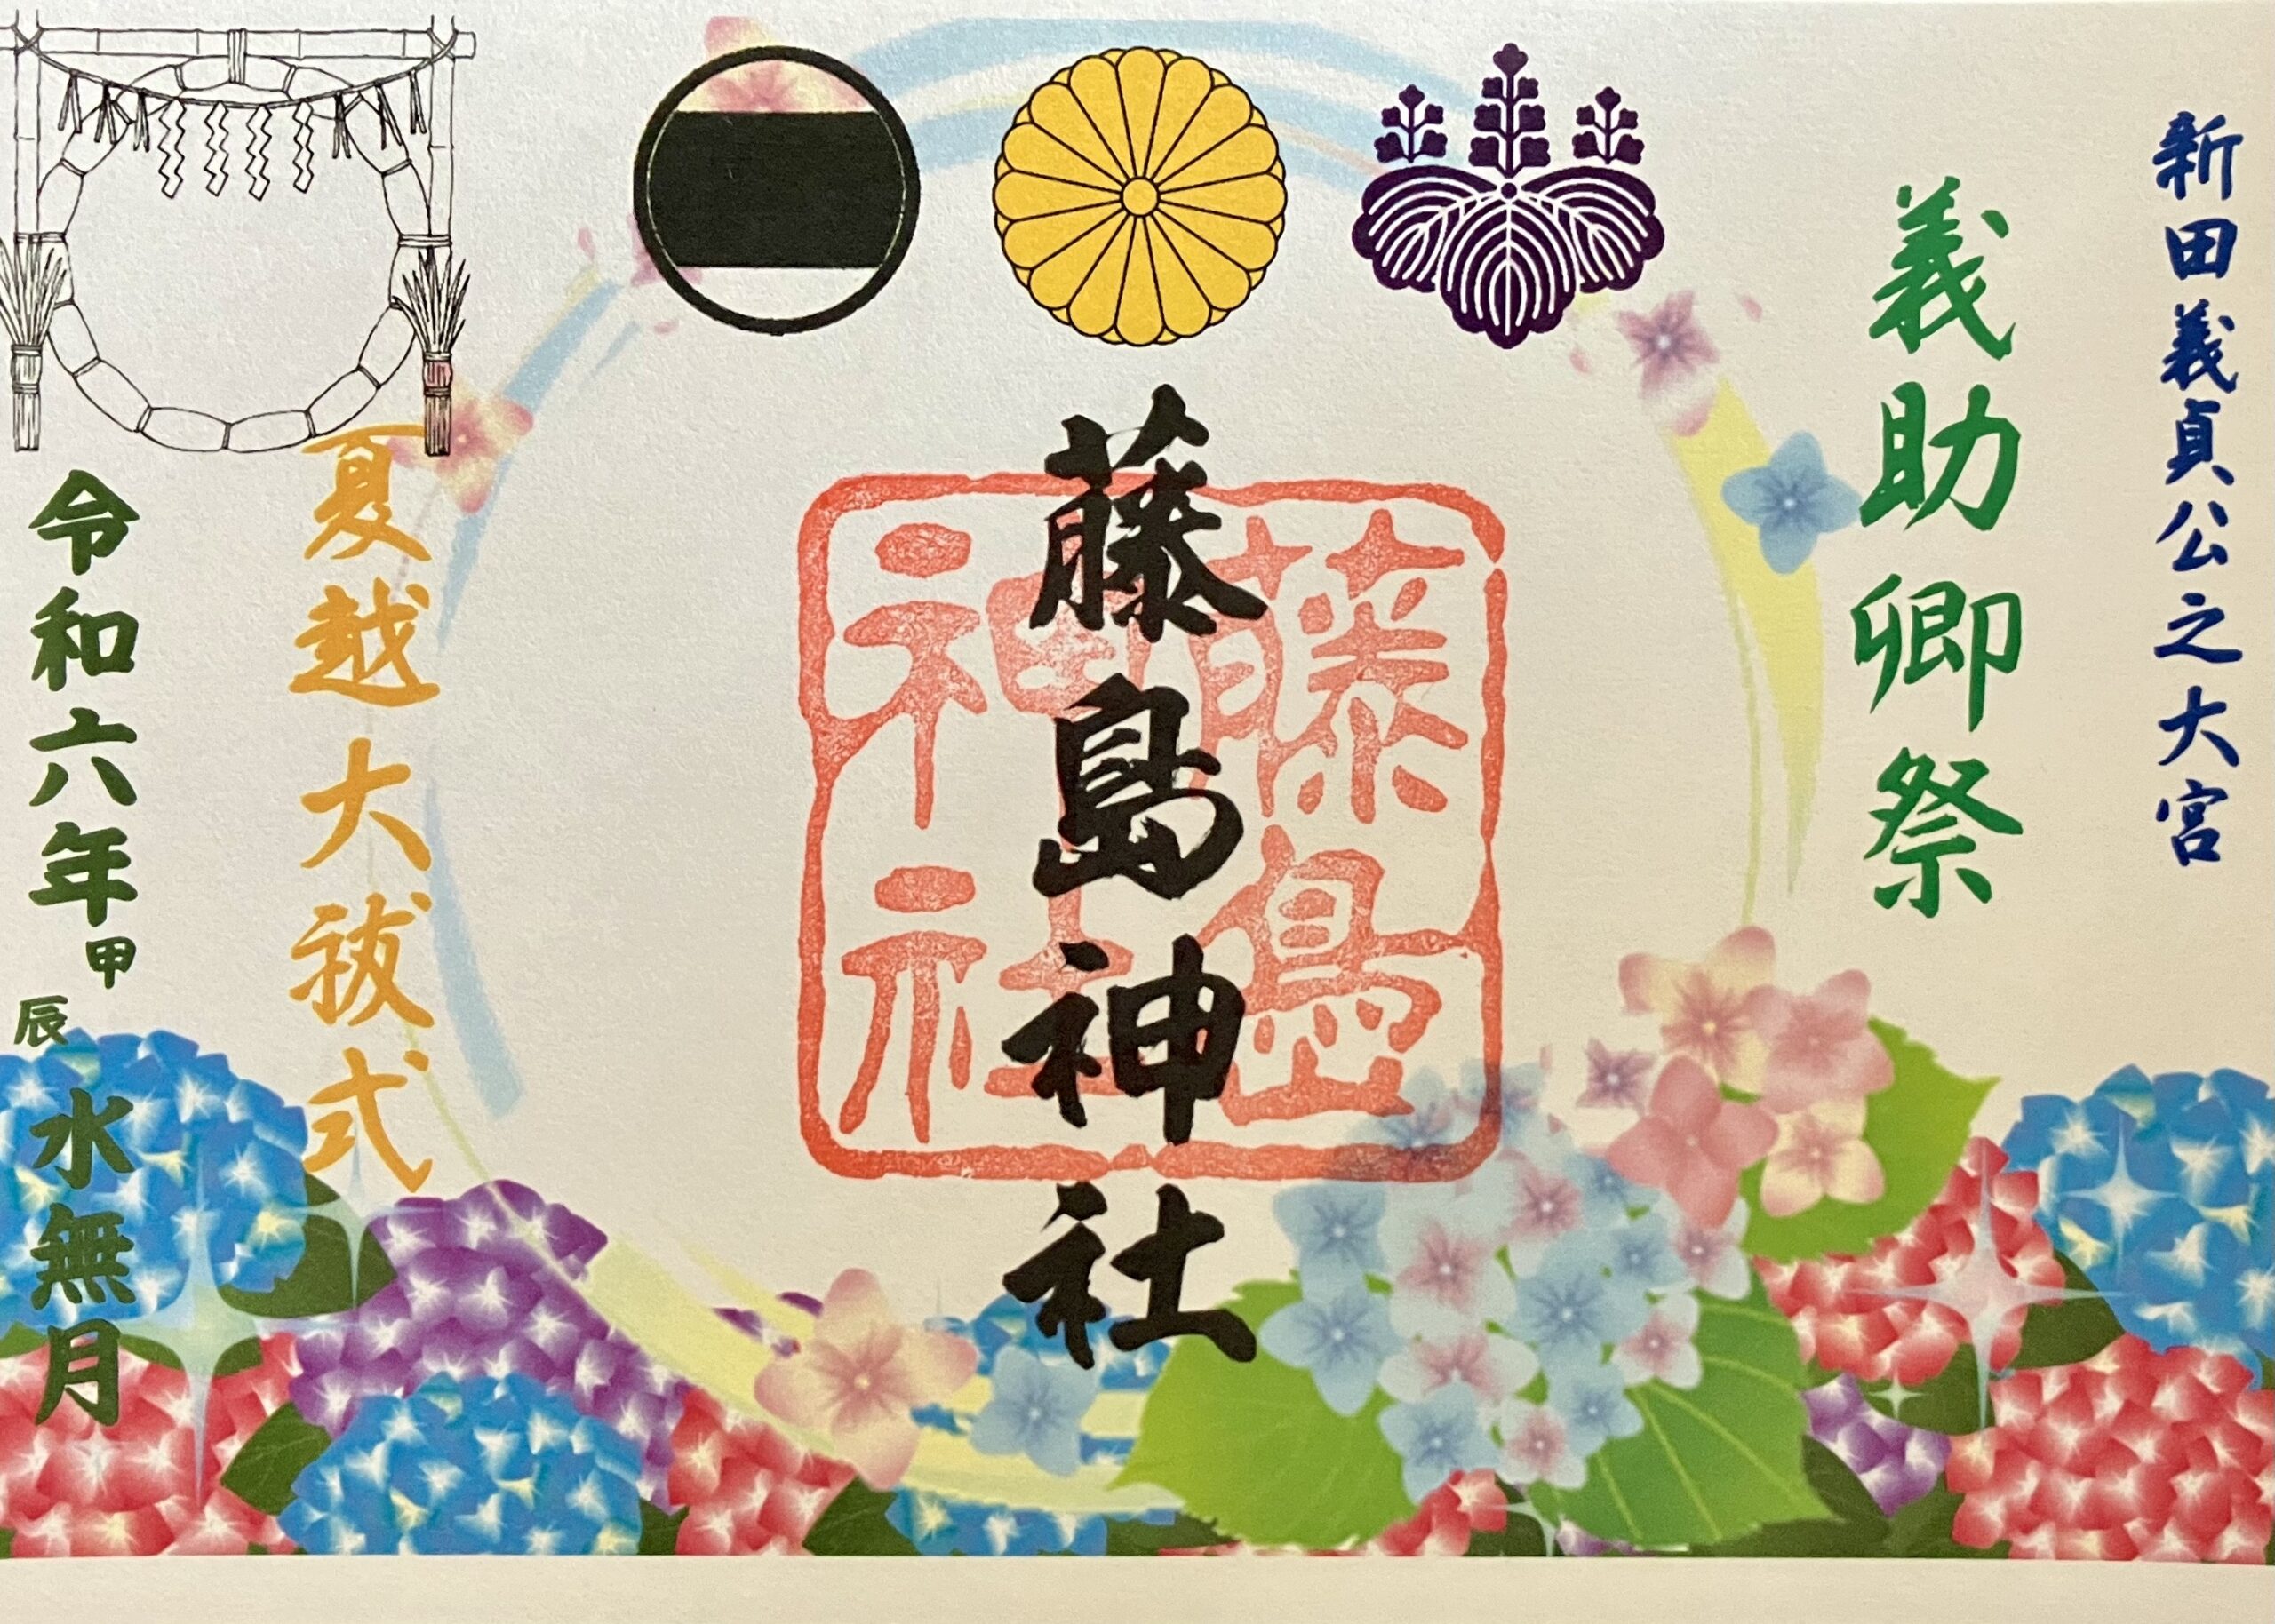 新田義貞公之大宮
義助卿祭
藤島神社
藤島
神社
夏越大祓式
令和六年甲辰 水無月